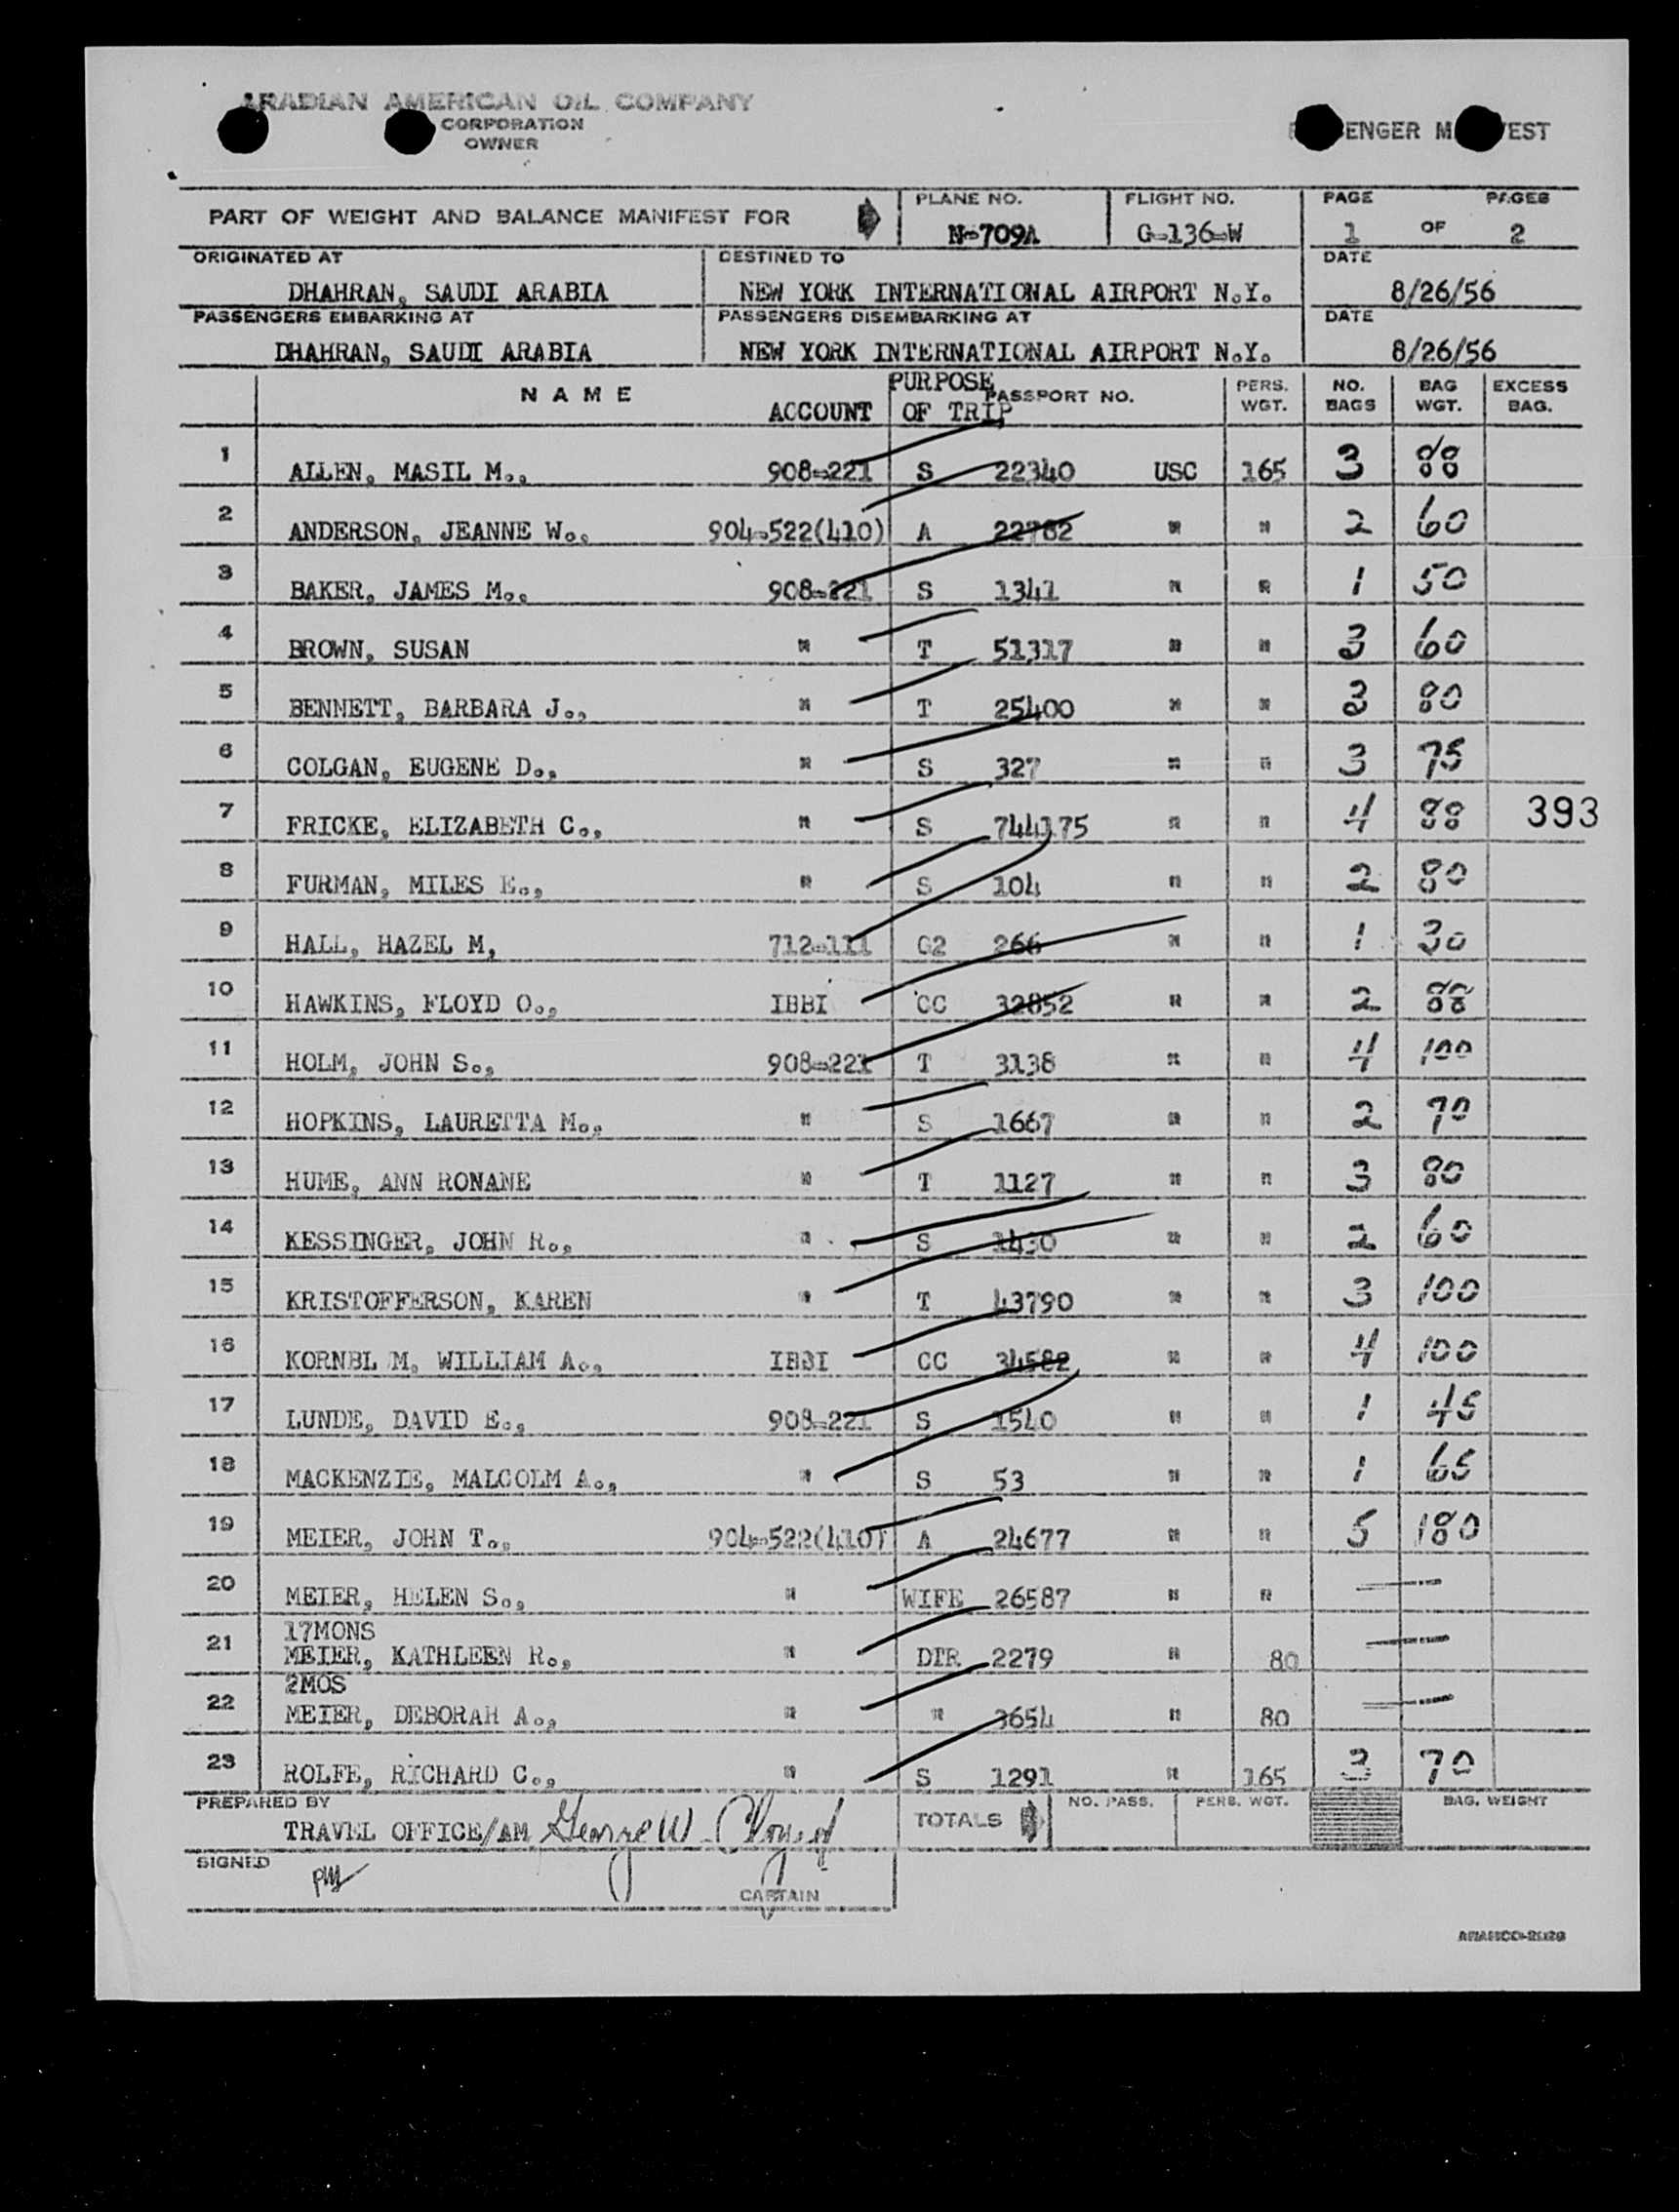 ARABIAN AMERICAN OIL COMPANY
CORPORATION
OWNER
ENGER M EST
PART OF WEIGHT AND BALANCE MANIFEST FOR
PLANE NO. FLIGHT NO. PAGE PAGES
N-709A G-136-W 1 OF 2
ORIGINATED AT DESTINED TO DATE
DHAHRAN, SAUDI ARABIA NEW YORK INTERNATIONAL AIRPORT N.Y. 8/26/56
PASSENGERS EMBARKING AT PASSENGERS DISEMBARKING AT DATE
DHAHRAN, SAUDI ARABIA NEW YORK INTERNATIONAL AIRPORT N.Y. 8/26/56
NAME ACCOUNT PURPOSE OF TRIP PASSPORT NO. PERS. WGT. NO. BAGS BAG WGT. EXCESS BAG.
1 ALLEN, MASIL M., 908-221 S 22340 USC 165 3 88
2 ANDERSON, JEANNE W., 904-522(410) A 22782 " " 2 60
3 BAKER, JAMES M., 908-221 S 1341 " " 1 50
4 BROWN, SUSAN " T 51317 " " 3 60
5 BENNETT, BARBARA J., " T 25400 " " 3 80
6 COLGAN, EUGENE D., " S 327 " " 3 75
7 FRICKE, ELIZABETH C., " S 744175 " " 4 88 393
8 FURMAN, MILES E., " S 104 " " 2 80
9 HALL, HAZEL M, 712-111 G2 266 " " 1 30
10 HAWKINS, FLOYD O., IBBI CC 32852 " " 2 88
11 HOLM, JOHN S., 908-221 T 3138 " " 4 100
12 HOPKINS, LAURETTA M., " S 1667 " " 2 70
13 HUME, ANN RONANE " T 1127 " " 3 80
14 KESSINGER, JOHN R., " S 1430 " " 2 60
15 KRISTOFFERSON, KAREN " T 43790 " " 3 100
16 KORNBL M, WILLIAM A., IBBI CC 34582 " " 4 100
17 LUNDE, DAVID E., 908-221 S 1540 " " 1 45
18 MACKENZIE, MALCOLM A., " S 53 " " 1 65
19 MEIER, JOHN T., 904-522(410) A 24677 " " 5 180
20 MEIER, HELEN S., " WIFE 26587 " "
17MONS
21 MEIER, KATHLEEN R., " DTR 2279 " 80
2MOS
22 MEIER, DEBORAH A., " " 3654 " 80
23 ROLFE, RICHARD C., " S 1291 " 165 3 70
PREPARED BY TOTALS NO. PASS. PERS. WGT. BAG. WEIGHT
TRAVEL OFFICE/AM George W.
SIGNED
CAPTAIN